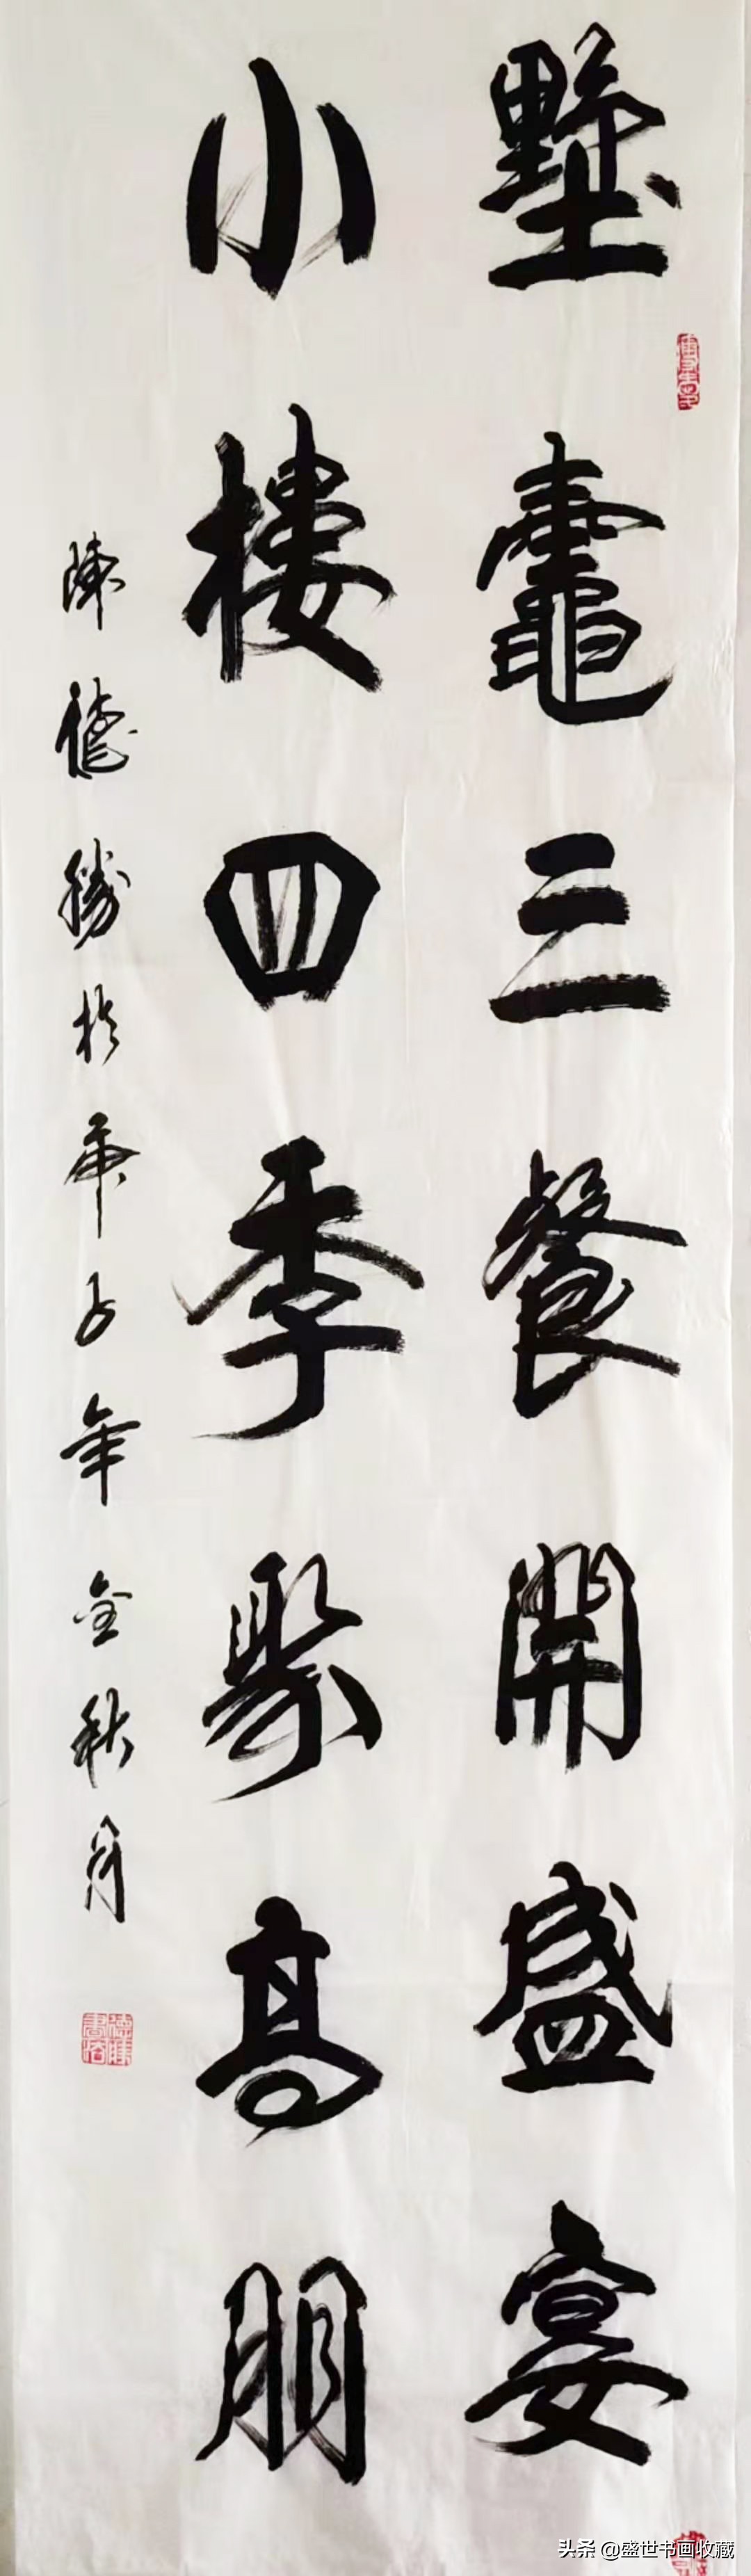 墅竈三餐開盛宴
小樓四季聚高朋
陳德勝於庚子年金秋月
头条 @盛世书画收藏